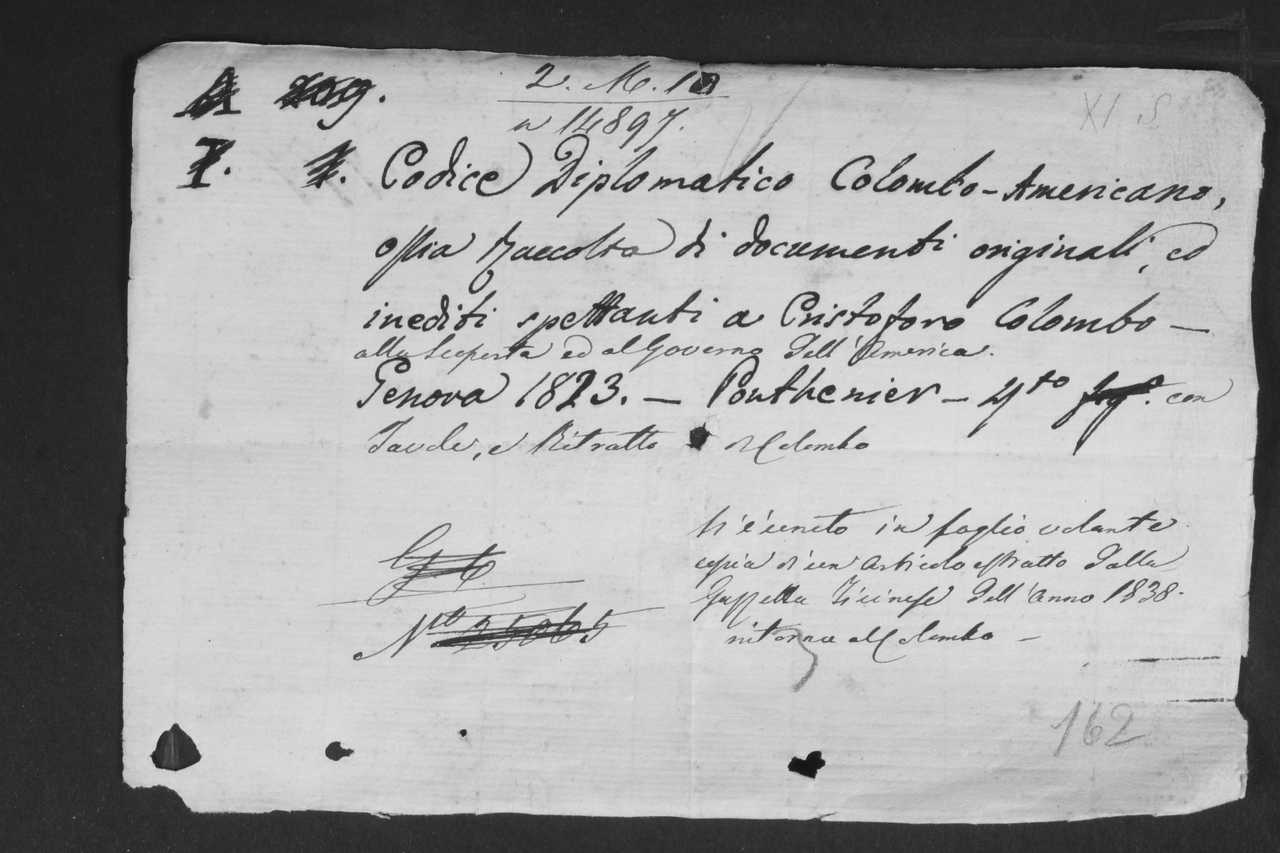 2. M. 10
n 14897.
XI S
I. Codice Diplomatico Colombo-Americano,
ossia Raccolta di documenti originali, ed
inediti spettanti a Cristoforo Colombo —
alla Scoperta ed al Governo dell'America.
Genova 1823. — Ponthenier — 4to con
Tavole, e Ritratto di Colombo
Vi è unito in foglio volante
copia di un articolo estratto dalla
Gazzetta Ticinese dell'Anno 1838.
intorno al Colombo —
No
162